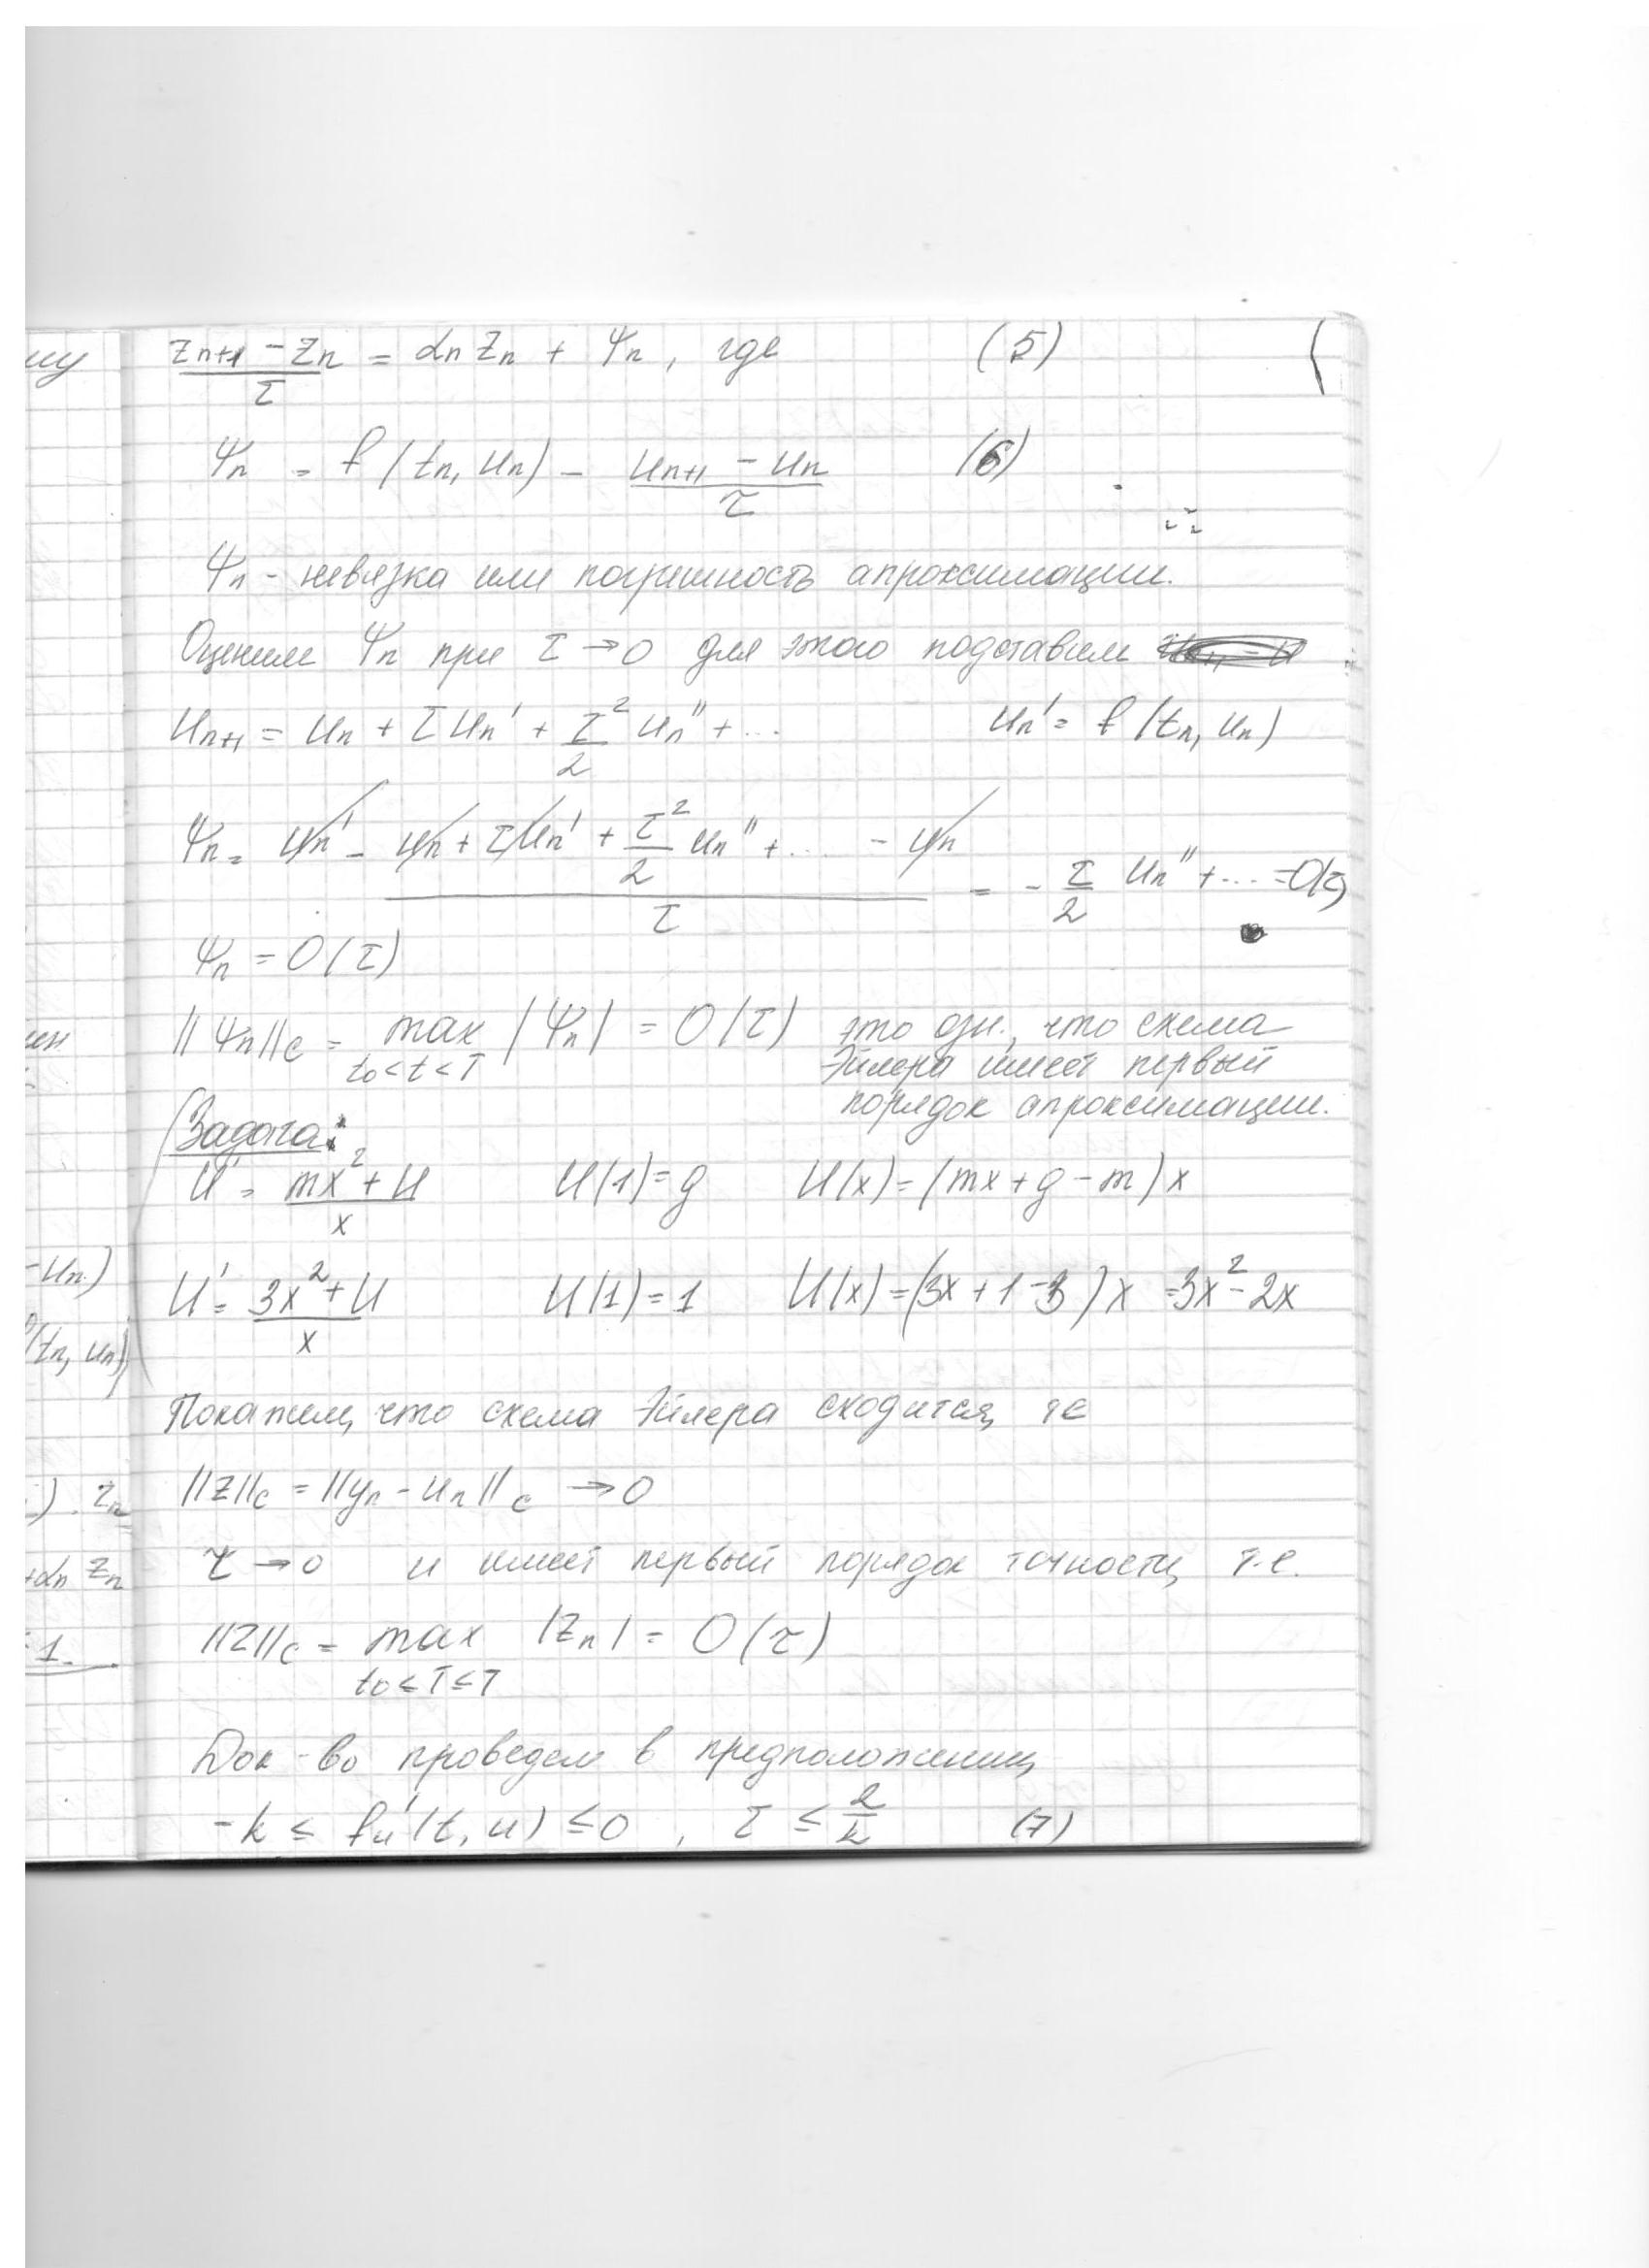 (z_{n+1} - z_n)/τ = α_n z_n + ψ_n, где (5)
ψ_n = f(t_n, u_n) - (u_{n+1} - u_n)/τ (6)
ψ_n - невязка или погрешность апроксимации.
Оценим ψ_n при τ → 0 для этого подставим
u_{n+1} = u_n + τ u_n' + τ²/2 u_n'' + ... u_n' = f(t_n, u_n)
ψ_n = u_n' - (u_n + τ u_n' + τ²/2 u_n'' + ... - u_n)/τ = - τ/2 u_n'' + ... = O(τ)
ψ_n = O(τ)
||ψ_n||_c = max_{t_0 < t < T} |ψ_n| = O(τ) это озн., что схема
Эйлера имеет первый
порядок апроксимации.
Задача:
U' = (mx² + U)/x U(1) = g U(x) = (mx + g - m)x
U' = (3x² + U)/x U(1) = 1 U(x) = (3x + 1 - 3)x = 3x² - 2x
Покажем, что схема Эйлера сходится, те
||z||_c = ||y_n - u_n||_c → 0
τ → 0 и имеет первый порядок точности, т.е.
||z||_c = max_{t_0 ≤ T ≤ T} |z_n| = O(τ)
Док-во проведем в предположении,
-k ≤ f_u'(t, u) ≤ 0, τ ≤ 2/k (7)
- u_n)
(t_n, u_n)
). z_n
+α_n z_n
1.